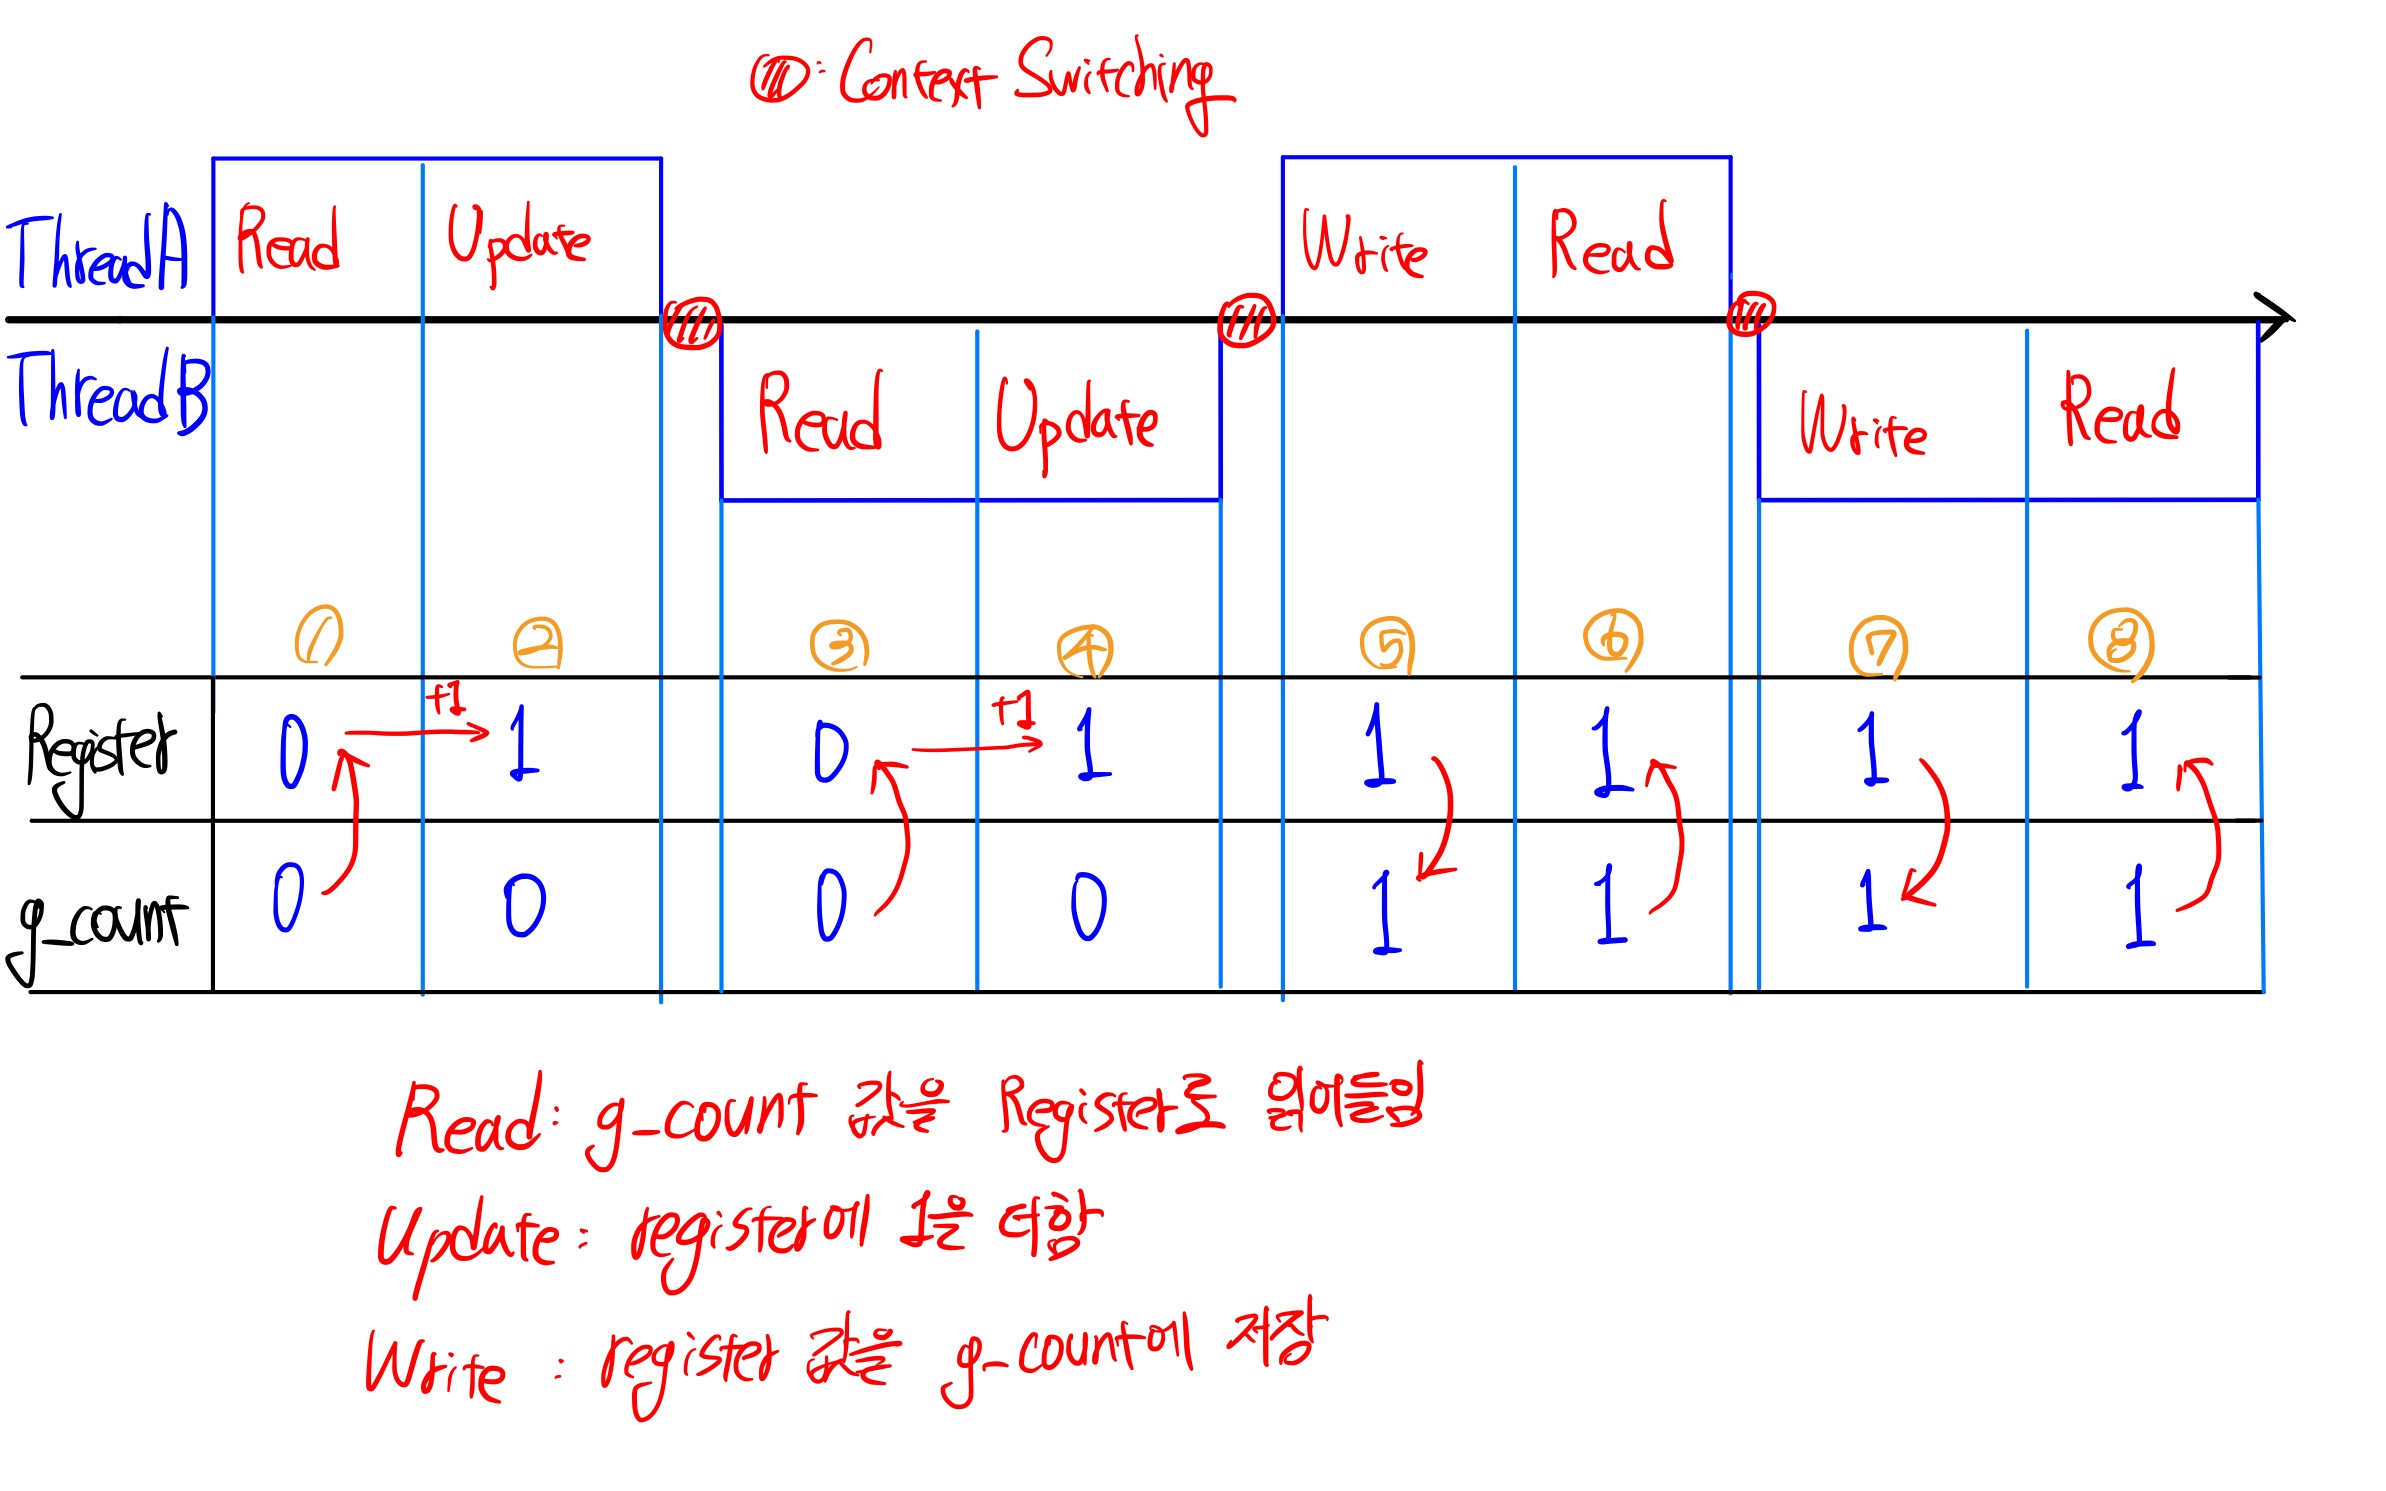 : Context Switching
ThreadA Read Update Write Read
ThreadB Read Update Write Read
① ② ③ ④ ⑤ ⑥ ⑦ ⑧
+1 +1
Register 0 1 0 1 1 1 1 1
g_count 0 0 0 0 1 1 1 1
Read : g_count 값을 Register로 읽어들임
Update : register에 1을 더함
Write : register 값을 g_count에 저장